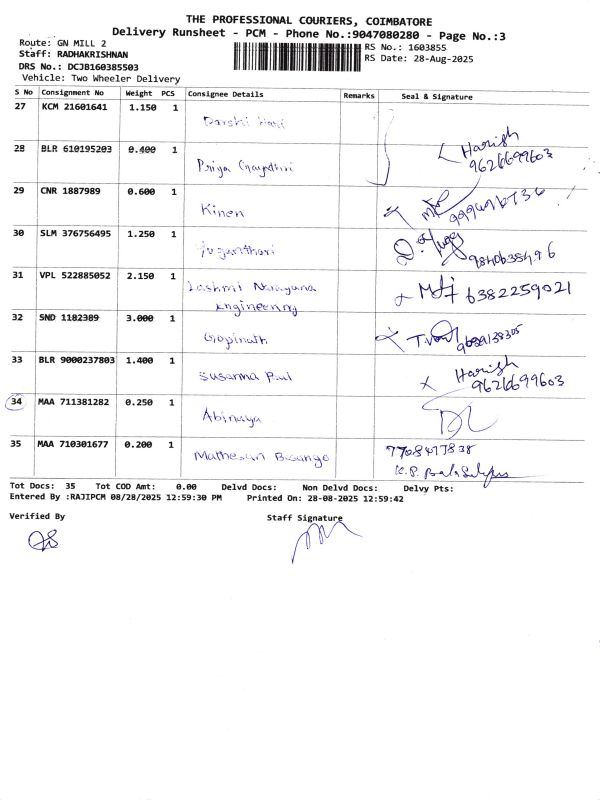 THE PROFESSIONAL COURIERS, COIMBATORE
Delivery Runsheet - PCM - Phone No.:9047080280 - Page No.:3
Route: GN MILL 2
RS No.: 1603855
Staff: RADHAKRISHNAN
RS Date: 28-Aug-2025
DRS No.: DCJB160385503
Vehicle: Two Wheeler Delivery
S No Consignment No Weight PCS Consignee Details Remarks Seal & Signature
27 KCM 21601641 1.150 1
Darshi Hari
28 BLR 610195203 0.400 1 Harish
Priya Gayathri 9626699603
29 CNR 1887989 0.600 1
Kinen
30 SLM 376756495 1.250 1
Yuganthari
31 VPL 522885052 2.150 1
Lashmi Narayana 6382259021
Engineering
32 SND 1182389 3.000 1
Gopinath
33 BLR 9000237803 1.400 1 Harish
Susanna Paul 9626699603
34 MAA 711381282 0.250 1
Abinaya
35 MAA 710301677 0.200 1
Mathesan
Tot Docs: 35 Tot COD Amt: 0.00 Delvd Docs: Non Delvd Docs: Delvy Pts:
Entered By :RAJIPCM 08/28/2025 12:59:30 PM Printed On: 28-08-2025 12:59:42
Verified By Staff Signature